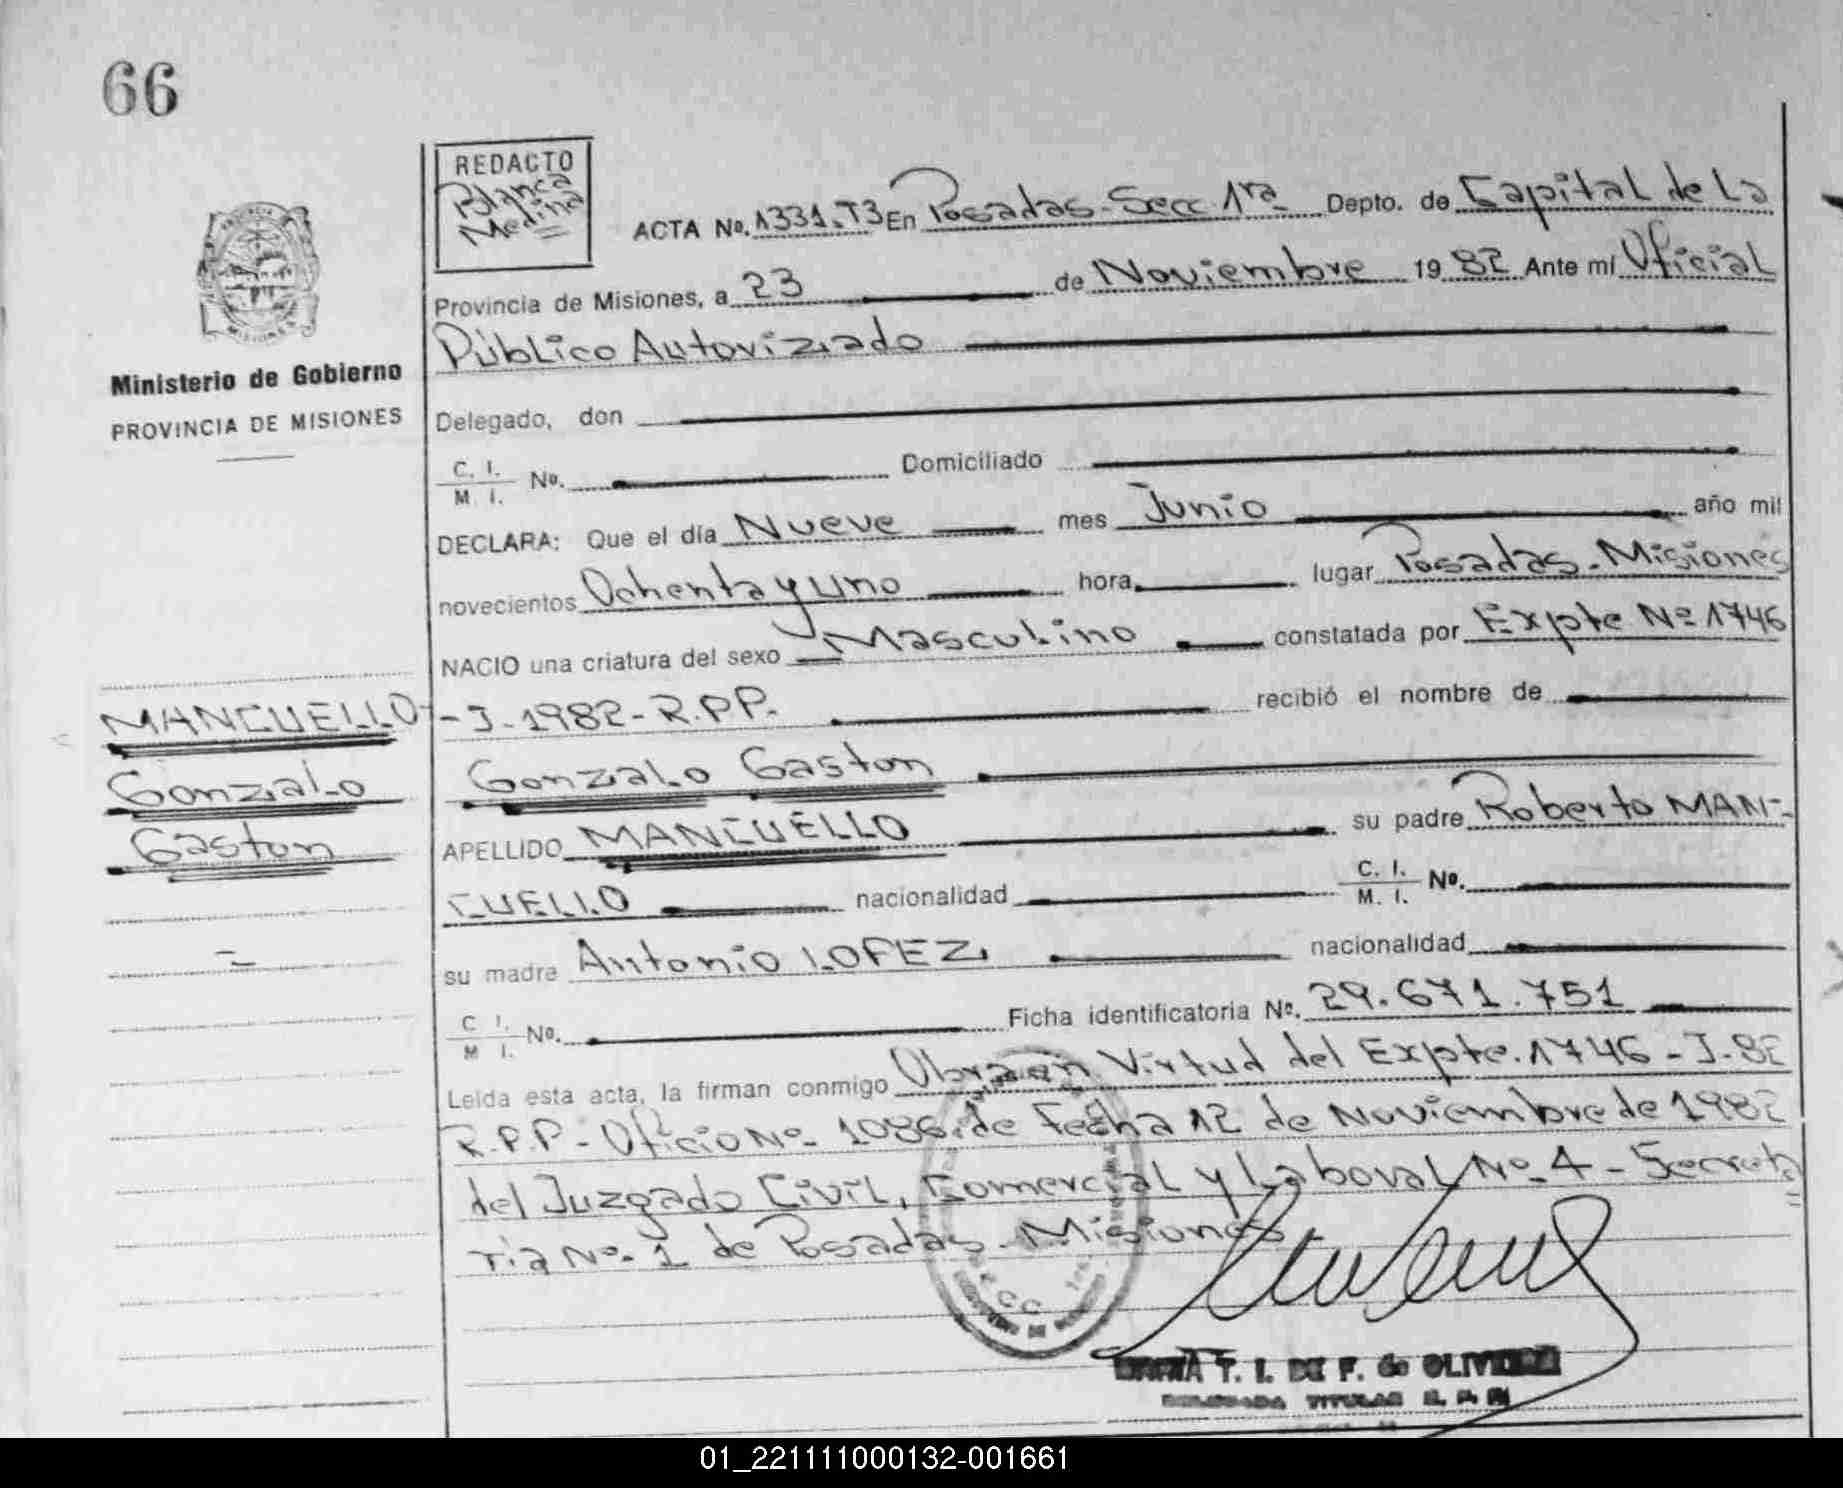 66
REDACTO
Blanca
Medina
ACTA No. 1331.T3 En Posadas-Secc 1ra Depto. de Capital de La
Provincia de Misiones, a 23 de Noviembre 1982 Ante mí Oficial
Público Autorizado
Ministerio de Gobierno
PROVINCIA DE MISIONES
Delegado, don
C. I.
M. I.
No. Domiciliado
DECLARA: Que el día Nueve mes Junio año mil
novecientos Ochenta y uno hora lugar Posadas-Misiones
NACIO una criatura del sexo Masculino constatada por Expte Nº 1746
-J-1982-R.P.P. recibió el nombre de
MANCUELLO
Gonzalo
Gaston
Gonzalo Gaston
APELLIDO MANCUELLO su padre Roberto MAN-
CUELLO nacionalidad C. I.
M. I. No.
su madre Antonio LOPEZ nacionalidad
C I.
M I. No. Ficha identificatoria Nº. 29.671.751
Leída esta acta, la firman conmigo Virtud del Expte. 1746-J-82
R.P.P-Oficio Nº- 1086.de Fecha 12 de Noviembre de 1982
del Juzgado Civil, Comercial y Laboral Nº-4-Secreta
ria Nº-1 de Posadas-Misiones
T. I. DE F. de OLIVEIRA
DELEGADA TITULAR
01_221111000132-001661